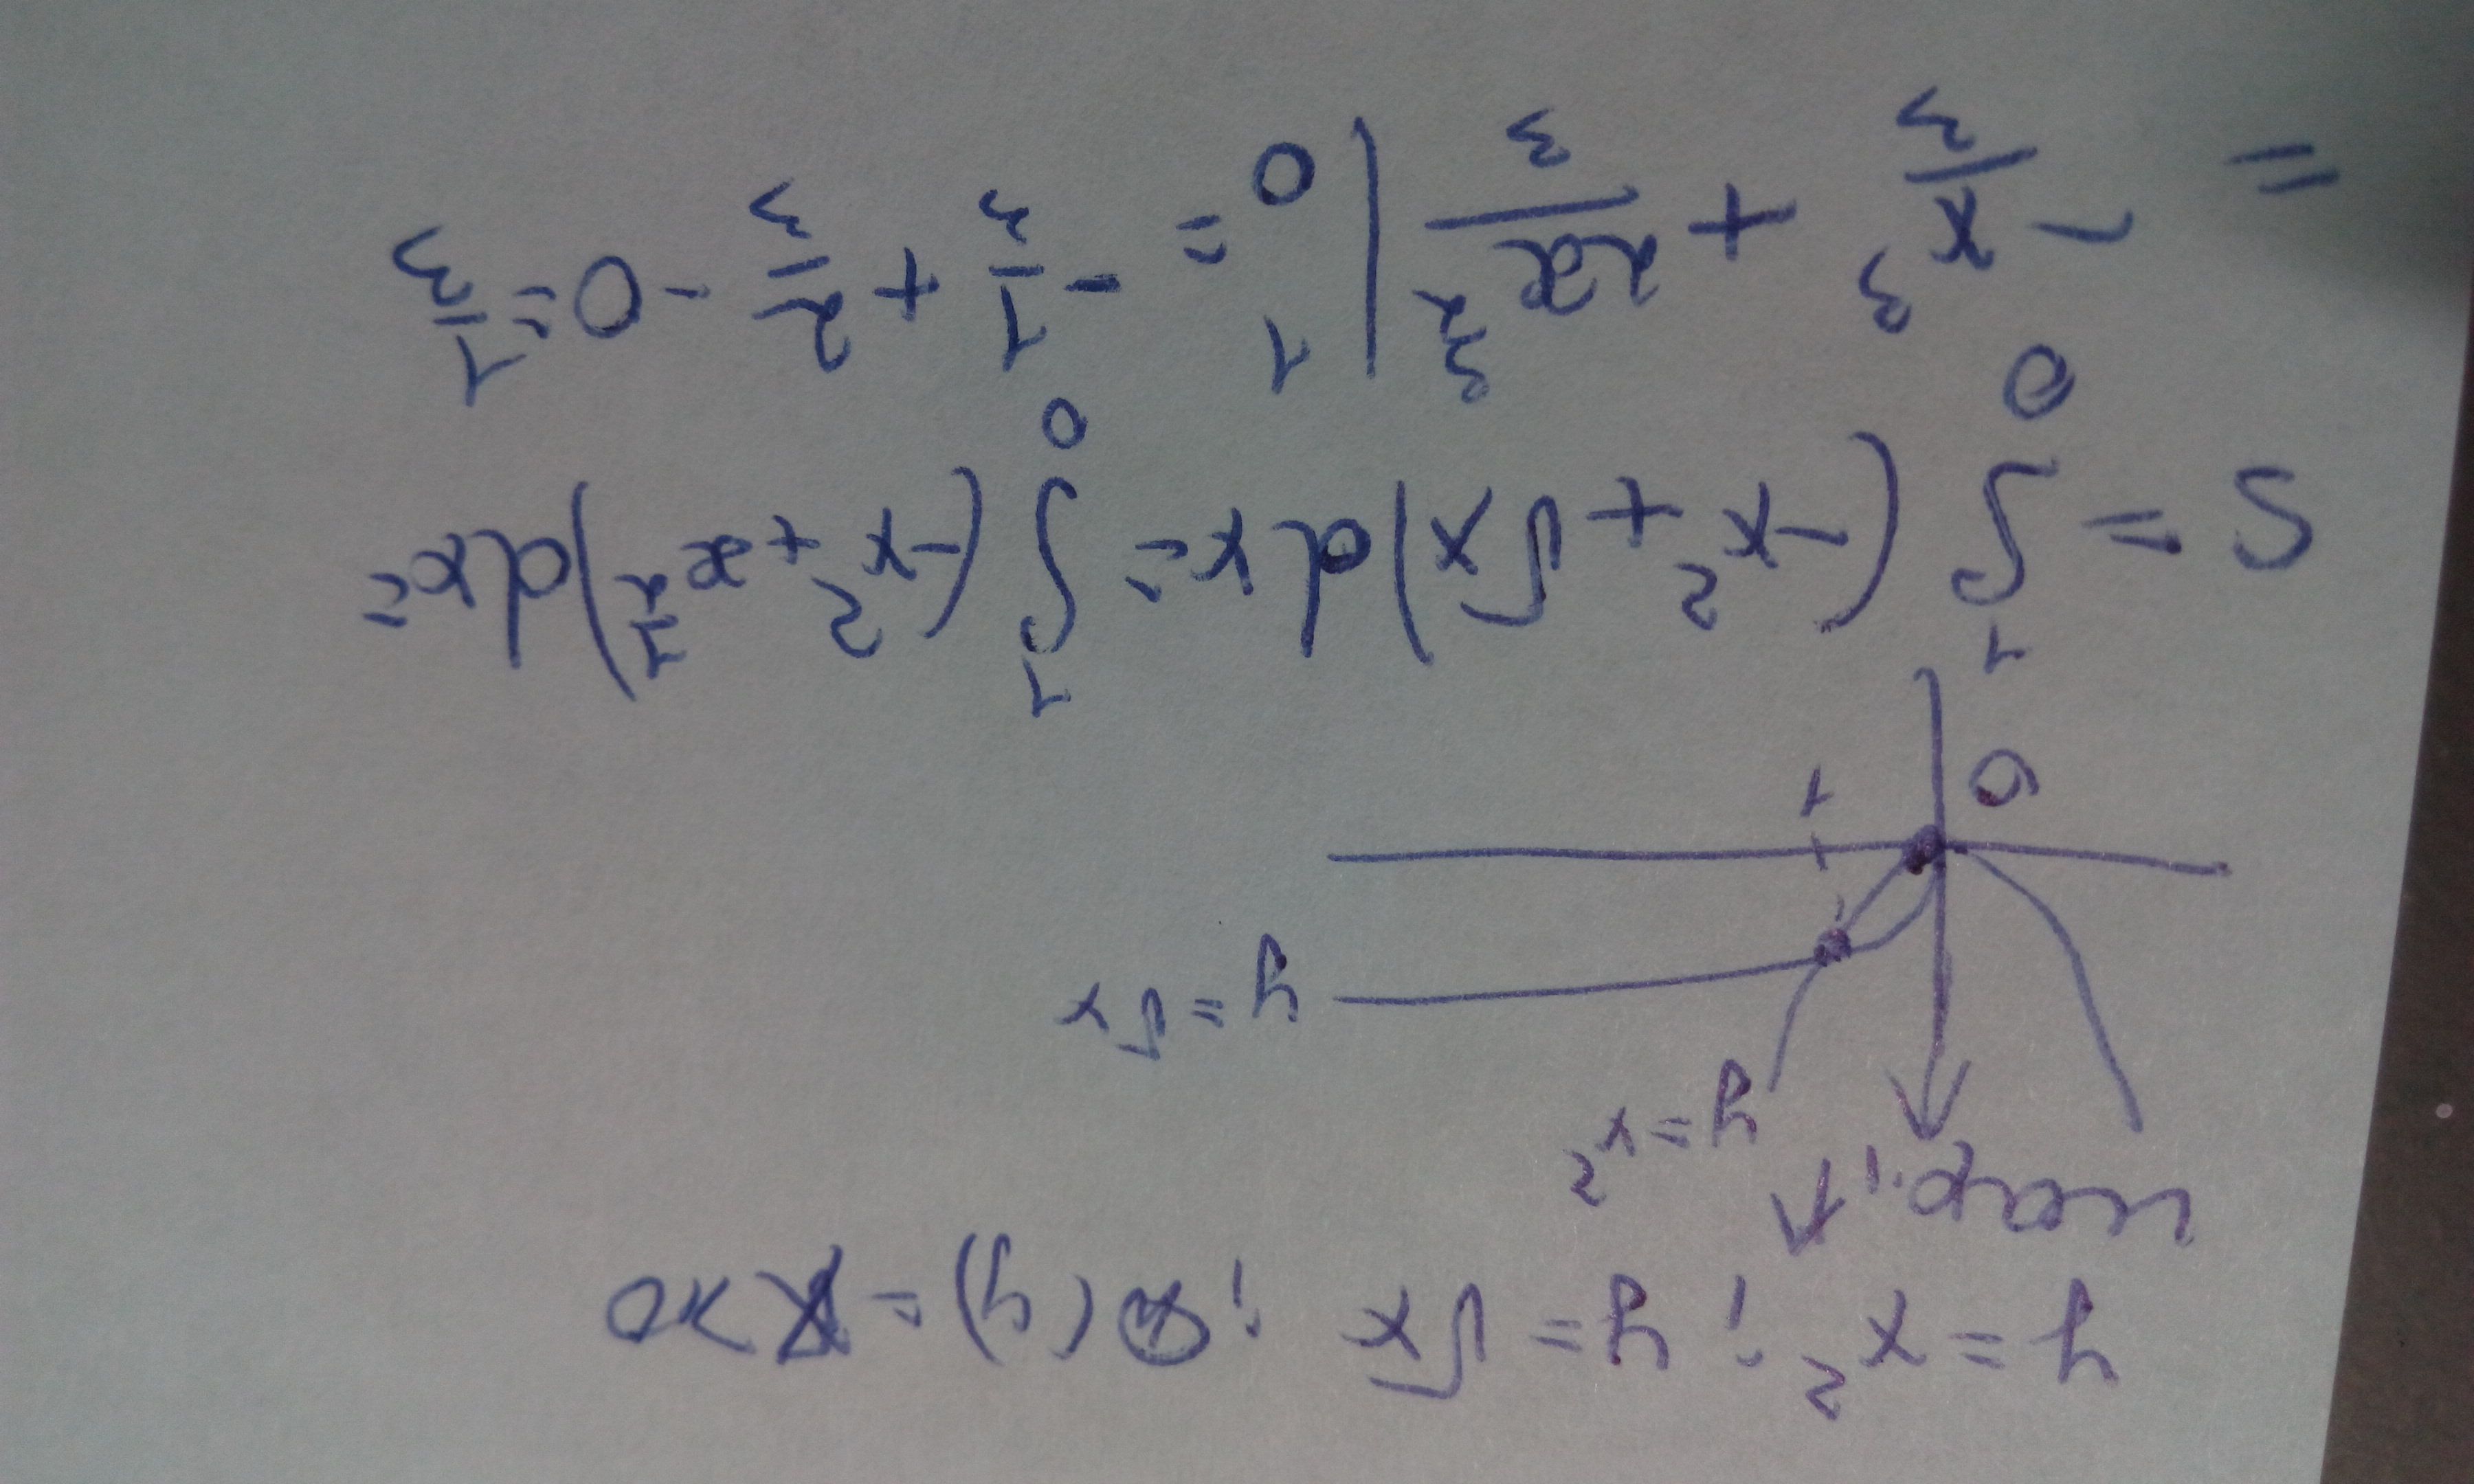 y = x²; y = √x
парад.
y = x²
y = √x
0 1
S = ∫₀¹ (-x² + √x)dx = ∫₀¹ (-x² + x^(1/2))dx =
= -x³/3 + 2x^(3/2)/3 |₀¹ = -1/3 + 2/3 - 0 = 1/3